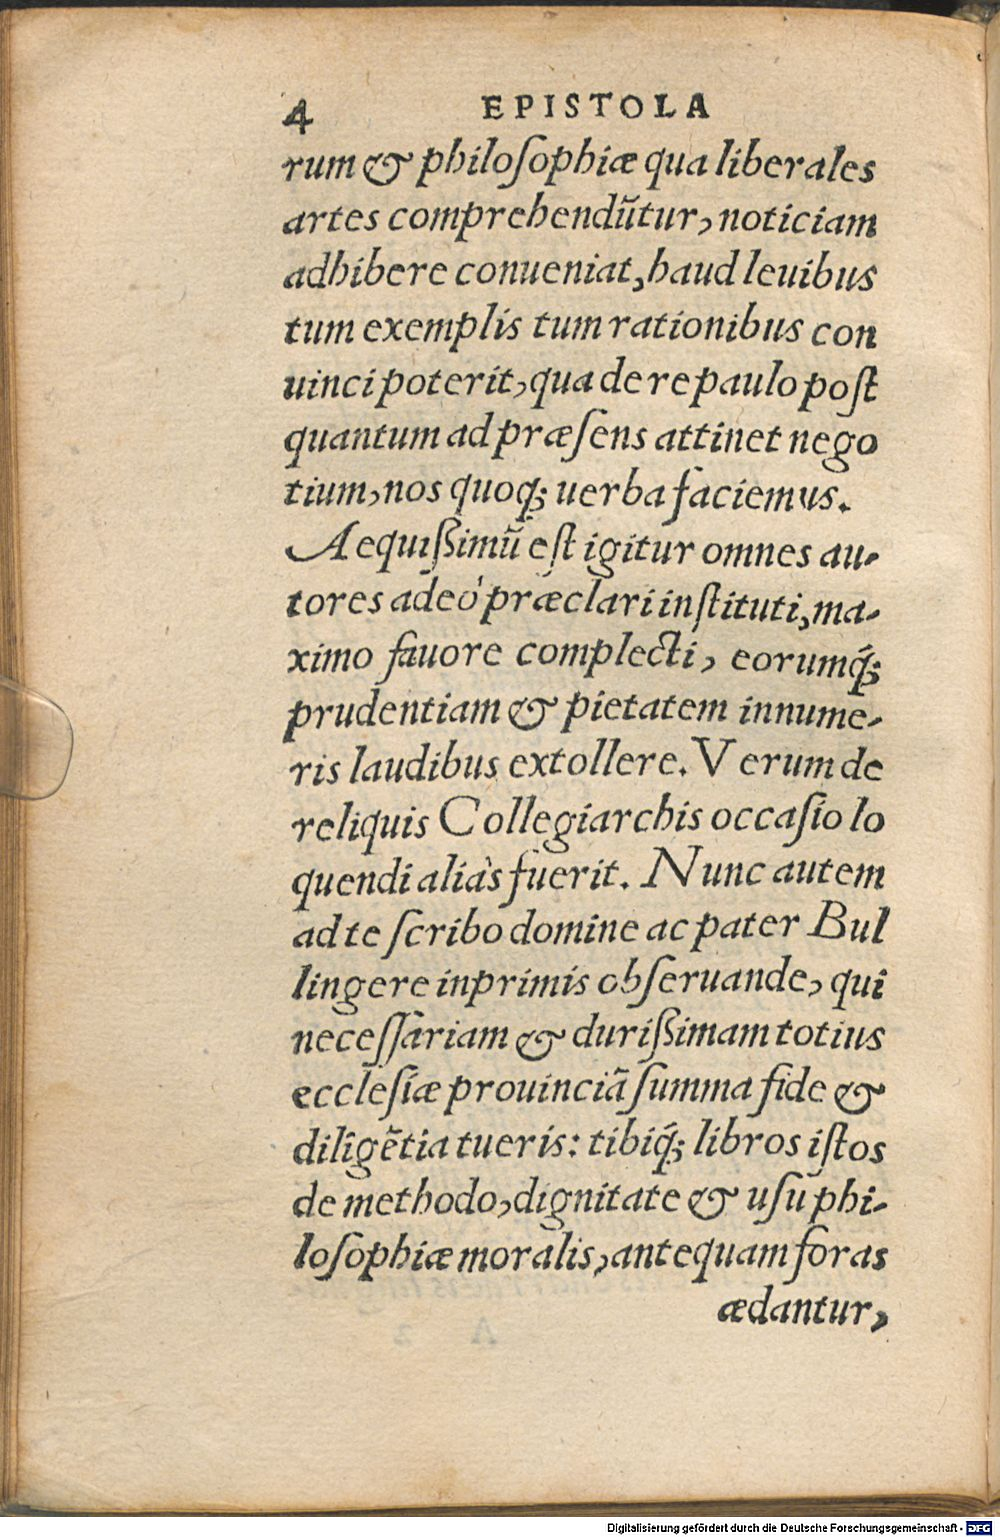 4 EPISTOLA
rum & philoſophiæ qua liberales
artes comprehendũtur, noticiam
adhibere conueniat, haud leuibus
tum exemplis tum rationibus con
uinci poterit, qua de re paulo poſt
quantum ad præſens attinet nego
tium, nos quoq; uerba faciemus.
Aequißimũ eſt igitur omnes au-
tores adeò præclari inſtituti, ma-
ximo fauore complecti, eorumq́;
prudentiam & pietatem innume-
ris laudibus extollere. Verum de
reliquis Collegiarchis occaſio lo
quendi aliàs fuerit. Nunc autem
ad te ſcribo domine ac pater Bul
lingere inprimis obſeruande, qui
neceſſariam & durißimam totius
eccleſiæ prouinciã ſumma fide &
diligẽtia tueris: tibiq́; libros iſtos
de methodo, dignitate & uſu phi-
loſophiæ moralis, antequam foras
ædantur,
Digitalisierung gefördert durch die Deutsche Forschungsgemeinschaft - DFG